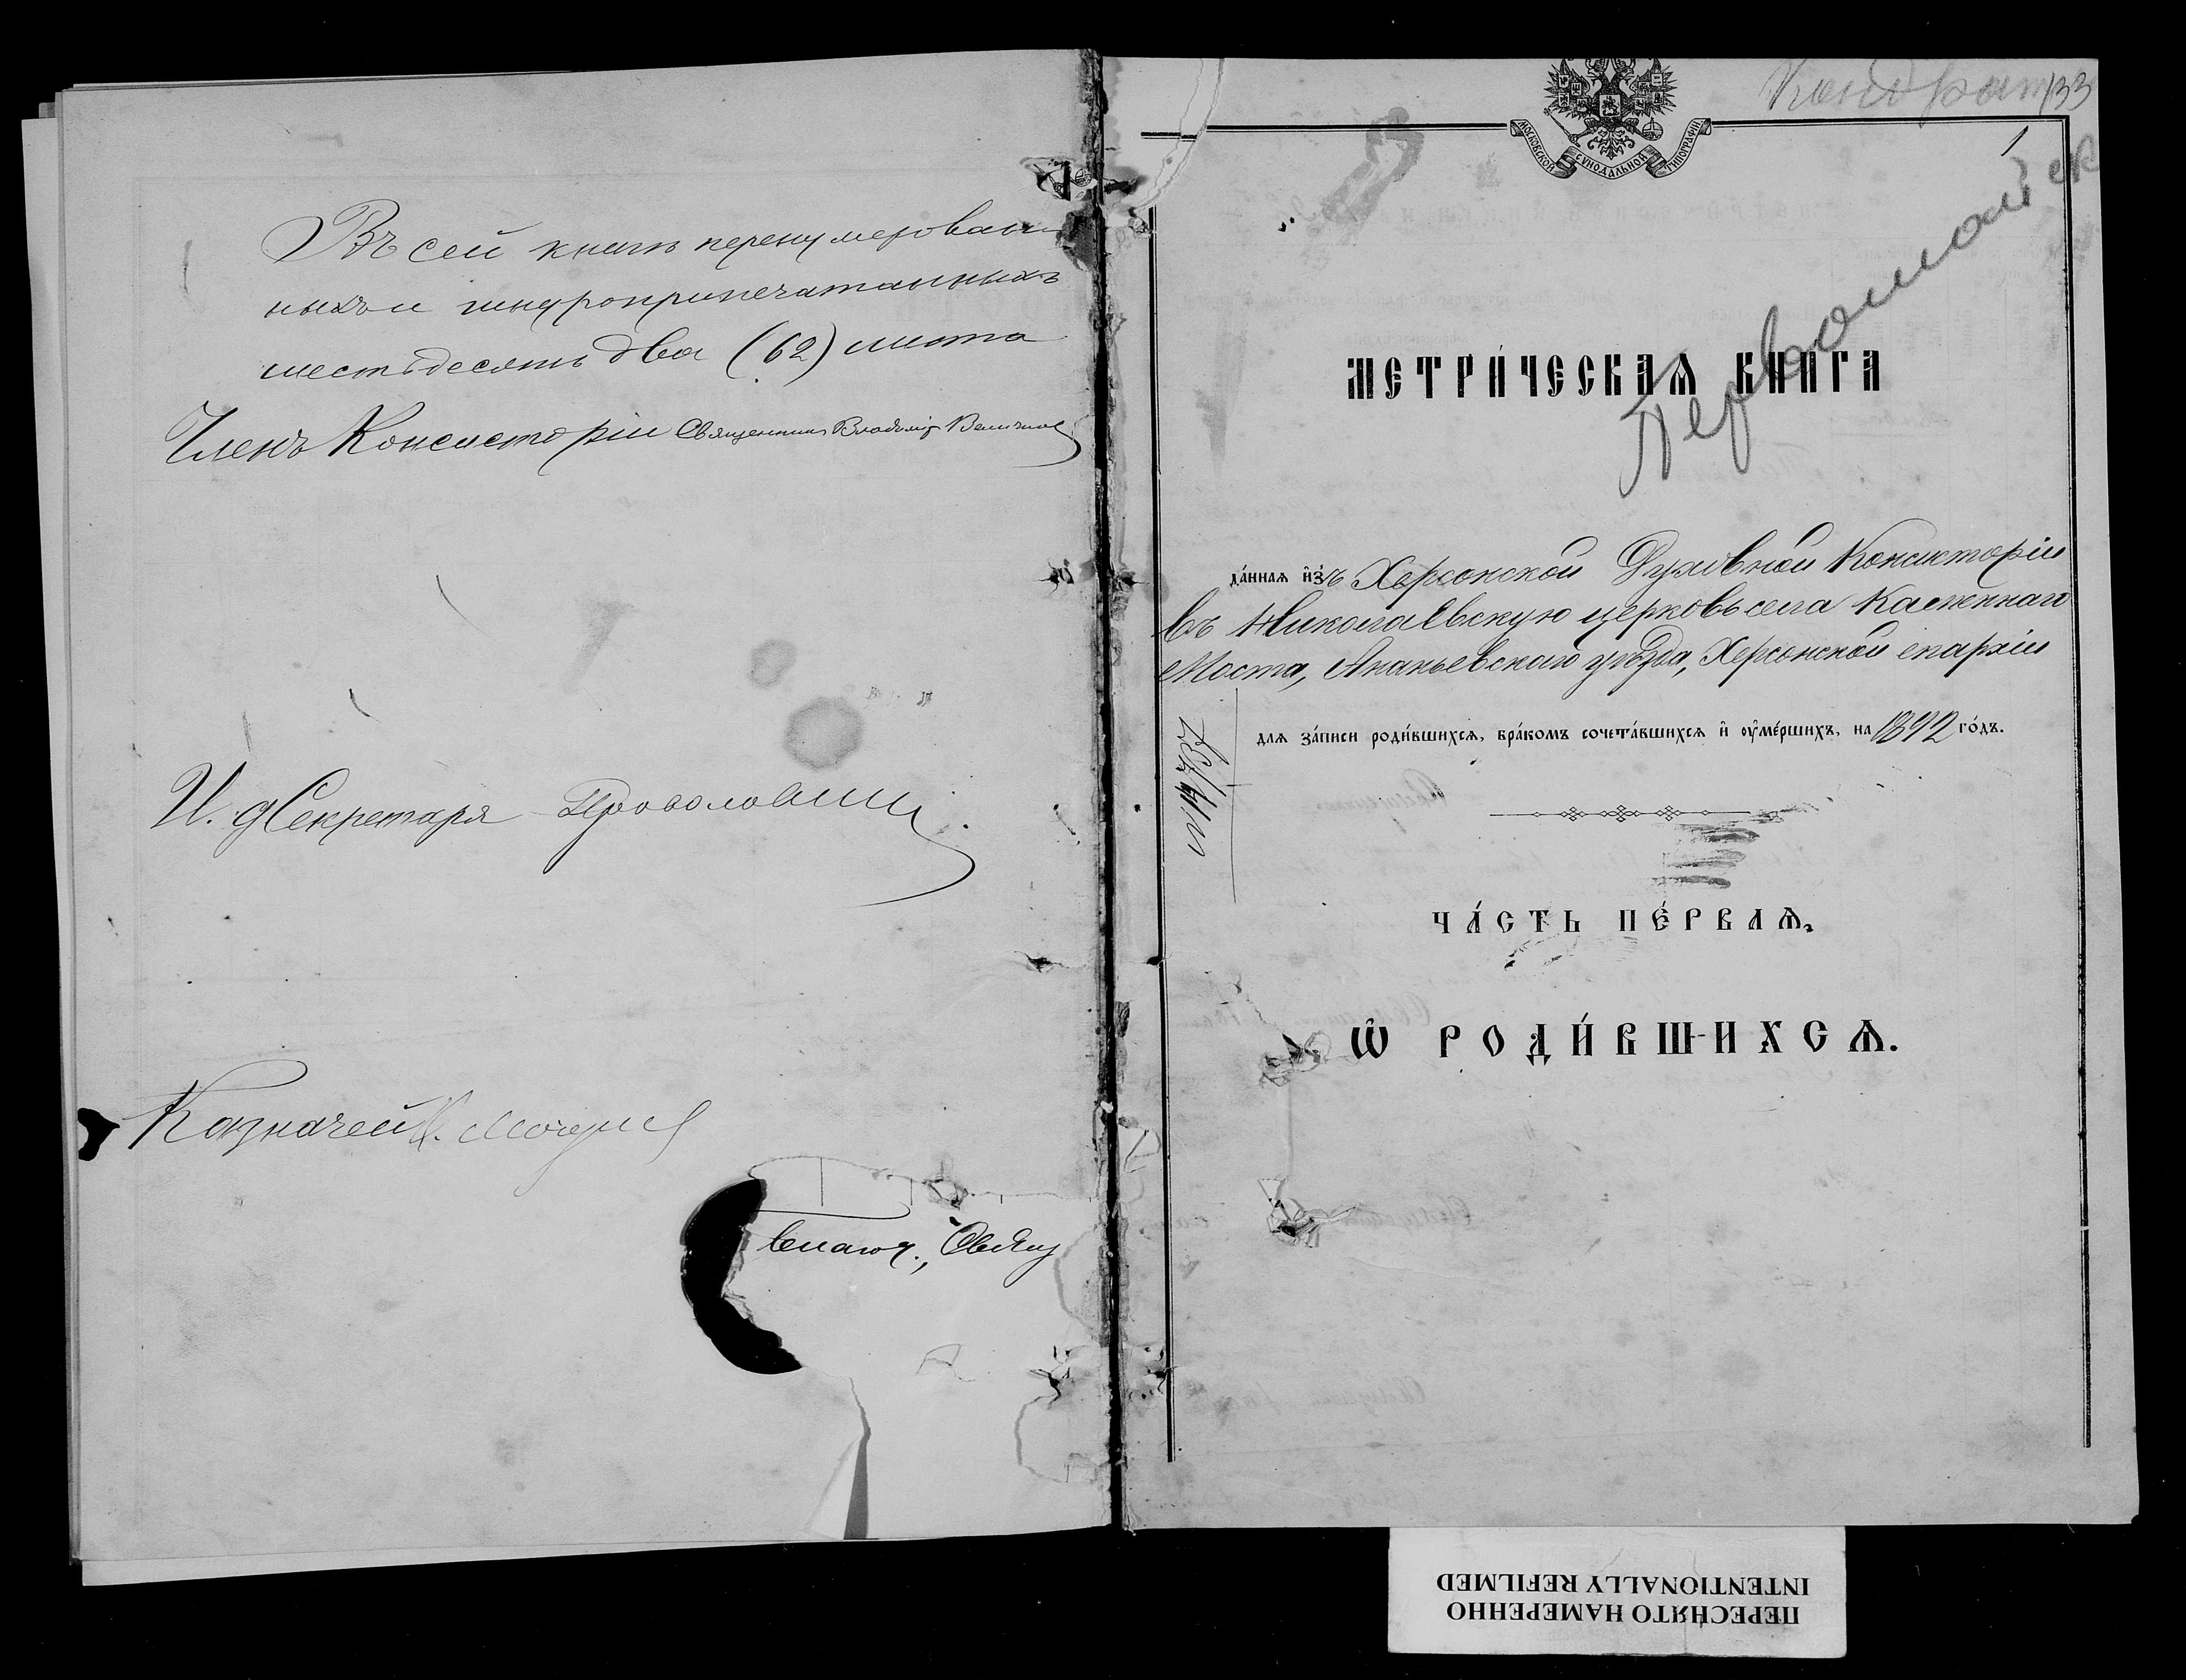 Въ сей книгѣ перенумерован-
ныхъ и шнуроприпечатанныхъ
шестьдесятъ два (62) листа
Членъ Консисторіи Священникъ Владиміръ
И. д Секретаря
Казначей
МОСКОВСКОЙ СѴНОДАЛЬНОЙ ТИПОГРАФІИ
133
1
Первомайск
МЕТРИ́ЧЕСКАѦ КНИГА
да́нная и҆зъ Херсонской Духовной Консисторіи
въ Николаевскую церковь села Касженнаго
Моста, Ананьевскаго уѣзда, Херсонской епархіи
для за́писи роди́вшихсѧ, бра́комъ сочета́вшихсѧ и҆ ᲂу҆ме́ршихъ, на 1892 го́дъ.
ЧА́СТЬ ПЕ́РВАѦ,
Ѡ҆ РОДИ́ВШИХСѦ.
ПЕРЕСНЯТО НАМЕРЕННО
INTENTIONALLY REFILMED